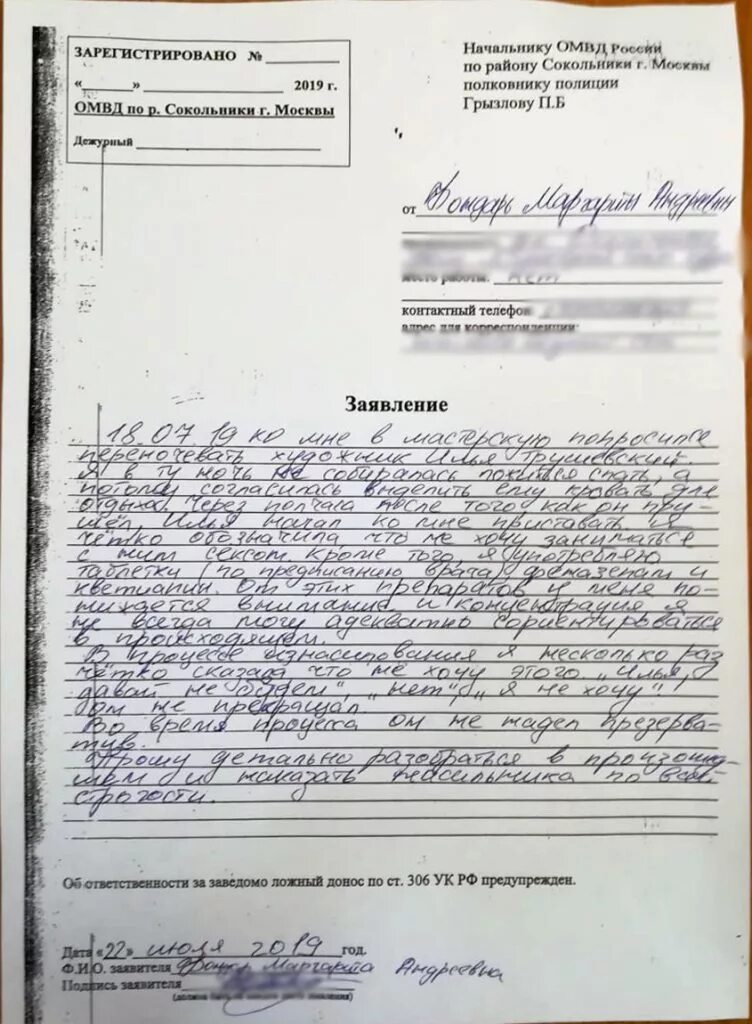 ЗАРЕГИСТРИРОВАНО №
« » 2019 г.
ОМВД по р. Сокольники г. Москвы
Дежурный
Начальнику ОМВД России
по району Сокольники г. Москвы
полковнику полиции
Грызлову П.Б
от Бондарь Маргариты Андреевны
место работы: нет
контактный телефон
адрес для корреспонденции:
Заявление
18.07.19 ко мне в мастерскую попросился
переночевать художник Илья Трушевский.
Я в ту ночь не собиралась ложиться спать, а
потому согласилась выделить ему кровать для
отдыха. Через полчаса после того как он при-
шёл, Илья начал ко мне приставать. Я
чётко обозначила что не хочу заниматься
с ним сексом. Кроме того, я употребляю
таблетки (по предписанию врача) феназепам и
кветиапин. От этих препаратов у меня по-
нижается внимание и концентрация, я
не всегда могу адекватно сориентироваться
в происходящем.
В процессе изнасилования я несколько раз
чётко сказала что не хочу этого „Илья,
давай не будем", „нет", „я не хочу".
Он не прекращал.
Во время процесса он не надел презерва-
тив.
Прошу детально разобраться в произошед-
шем и наказать насильника по всей
строгости.
Об ответственности за заведомо ложный донос по ст. 306 УК РФ предупрежден.
Дата «22» июля 2019 год.
Ф.И.О. заявителя Бондарь Маргарита Андреевна
Подпись заявителя